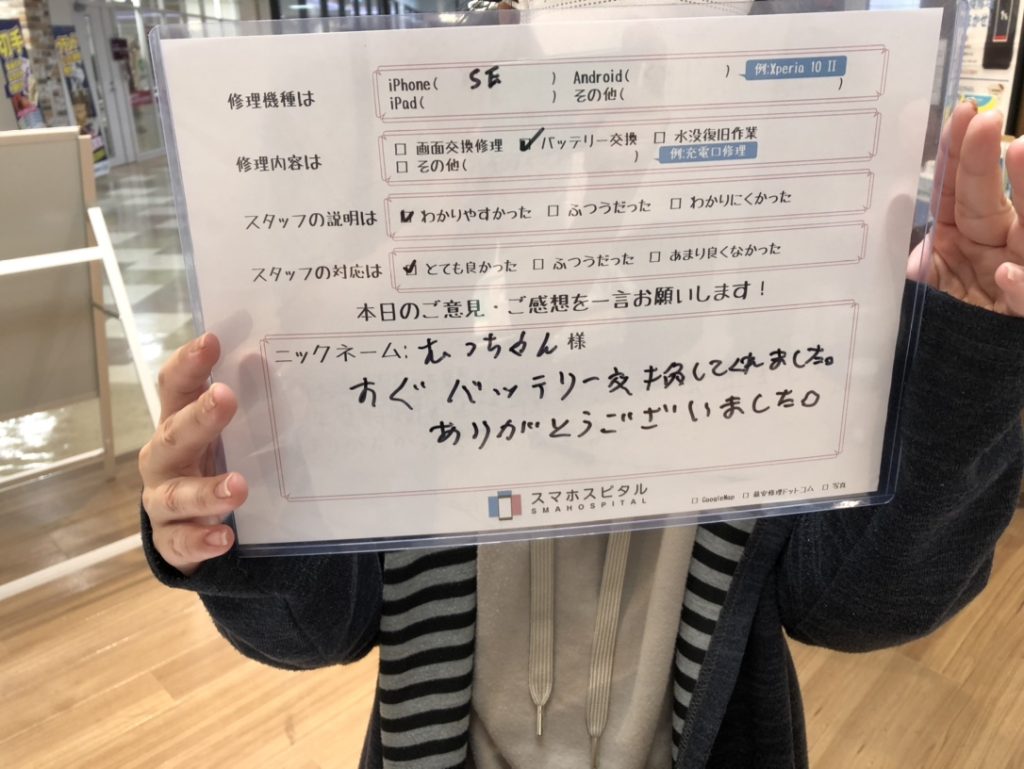 修理機種は
iPhone( SE ) Android( ) 例:Xperia 10 II
iPad( ) その他( )
修理内容は
□ 画面交換修理 ☑ バッテリー交換 □ 水没復旧作業
□ その他( ) 例:充電口修理
スタッフの説明は ☑ わかりやすかった □ ふつうだった □ わかりにくかった
スタッフの対応は ☑ とても良かった □ ふつうだった □ あまり良くなかった
本日のご意見・ご感想を一言お願いします!
ニックネーム: むっちゃん 様
すぐバッテリー交換してくれました。
ありがとうございました。
スマホスピタル
SMAHOSPITAL
□ GoogleMap □ 最安修理ドットコム □ 写真